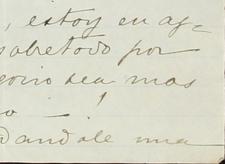 , estoy en ag=
sobretodo por
gocio sea mas
o - !
dandole una